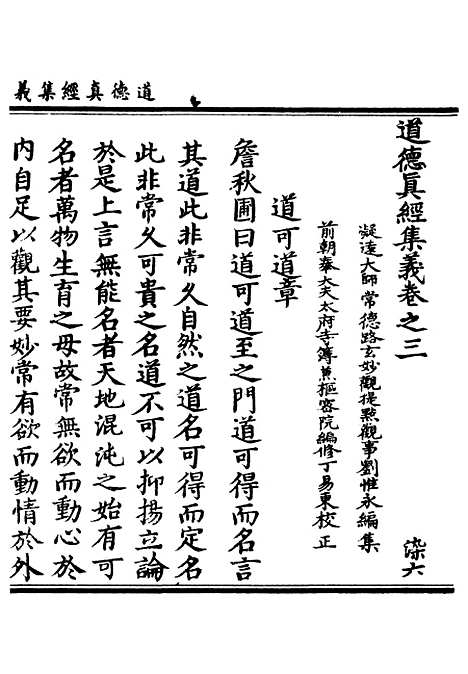 道德真經集義
道德眞經集義卷之三
染六
凝遠大師常德路玄妙觀提點觀事劉惟永編集
前朝奉大夫太府寺簿兼樞密院編修丁易東校正
道可道章
詹秋圃曰道可道至之門道可得而名言
其道此非常久自然之道名可得而定名
此非常久可貴之名道不可以抑揚立論
於是上言無能名者天地混沌之始有可
名者萬物生育之母故常無欲而動心於
內自足以觀其要妙常有欲而動情於外